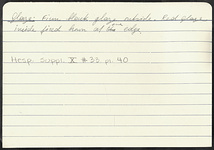 Glaze: Firm black glaze outside. Red glaze
inside fired brown at the edge.
Hesp. Suppl. X #35 p. 40